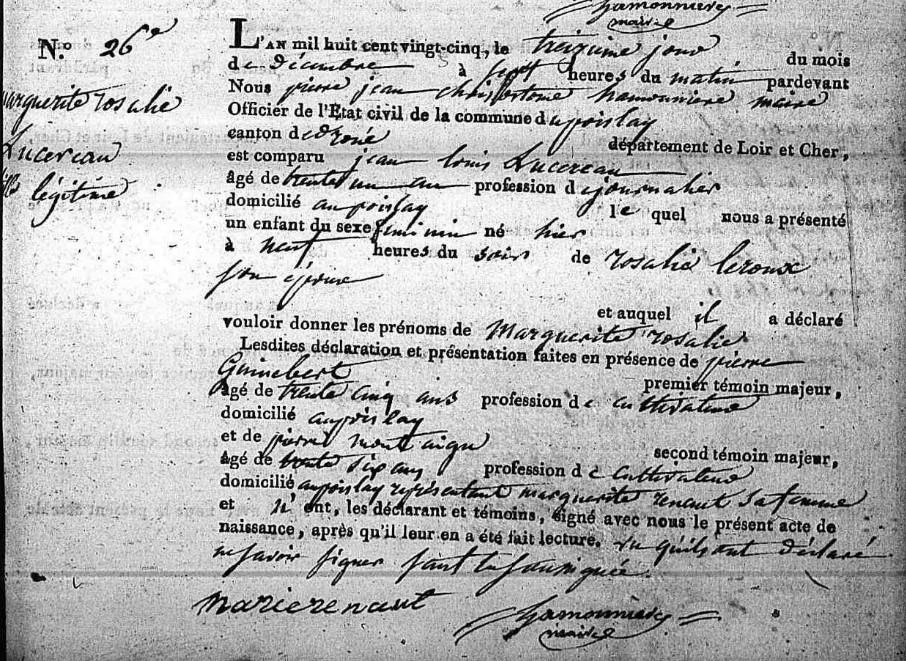 hamonnière
maire
N.º 26e
marguerite rosalie
Lucereau
fille légitime
L'AN mil huit cent vingt-cinq, le treizieme jour du mois
de décembre à sept heures du matin pardevant
Nous pierre jean chrisostome hamonnière maire
Officier de l'État civil de la commune dupoislay
canton de droué département de Loir et Cher,
est comparu jean louis Lucereau
âgé de trente un an profession de journalier
domicilié aupoislay lequel nous a présenté
un enfant du sexe feminin né hier
à neuf heures du soir de rosalie leroux
son épouse
et auquel il a déclaré
vouloir donner les prénoms de Marguerite rosalie
Lesdites déclaration et présentation faites en présence de pierre
Guinebert premier témoin majeur,
âgé de trente cinq ans profession de cultivateur
domicilié aupoislay
et de pierre montaigu second témoin majeur,
âgé de trente six ans profession de cultivateur
domicilié aupoislay représentant marguerite renaut sa femme
et n'ont, les déclarant et témoins, signé avec nous le présent acte de
naissance, après qu'il leur en a été fait lecture. vu qu'ils ont déclaré
ne savoir signer faut la sousignée.
marierenaut
hamonnière
maire